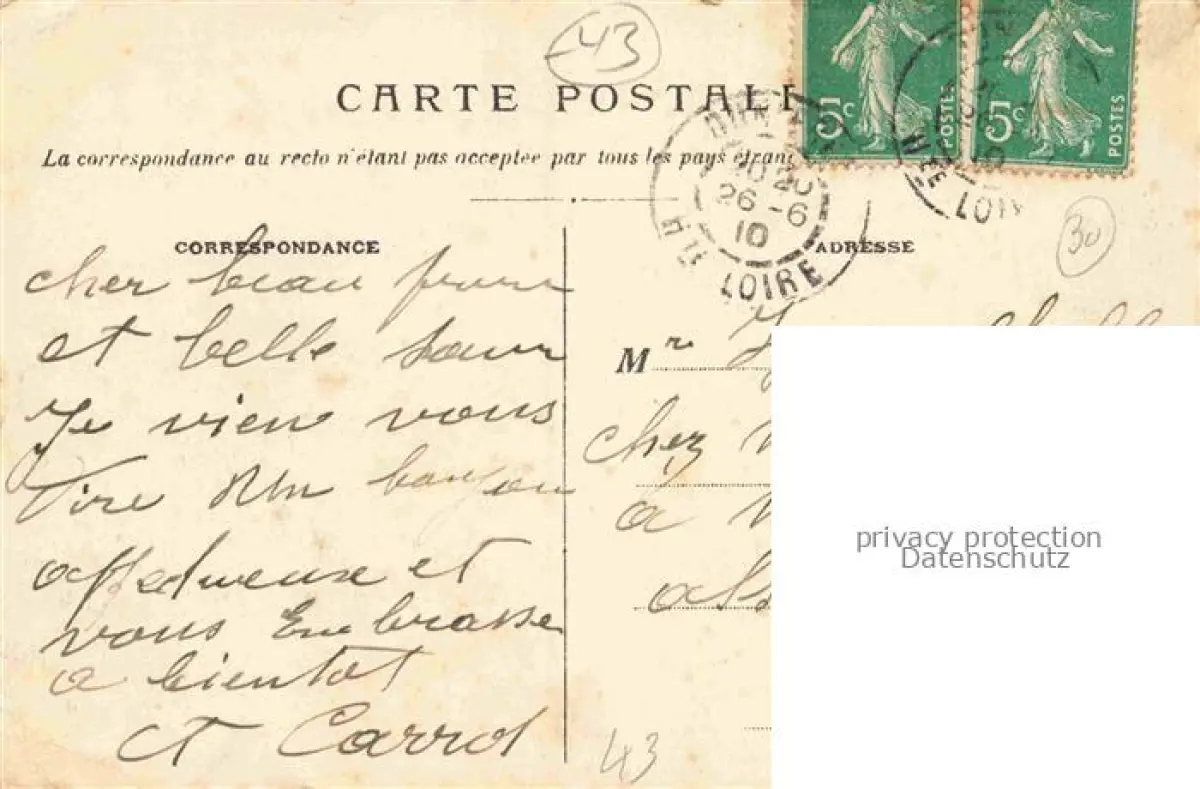 43
CARTE POSTAL
La correspondance au recto n'étant pas acceptée par tous les pays étran
5c POSTES
5c POSTES
20
26-6
10
Hte LOIRE
Hte LOIR
30
CORRESPONDANCE
ADRESSE
cher beau frere
et belle soeur
Je vien vous
Dire Un bonjou
affectueuse et
vous Embrasse
a bientot
Ct Carrot
Mr
chez
a
43
privacy protection
Datenschutz